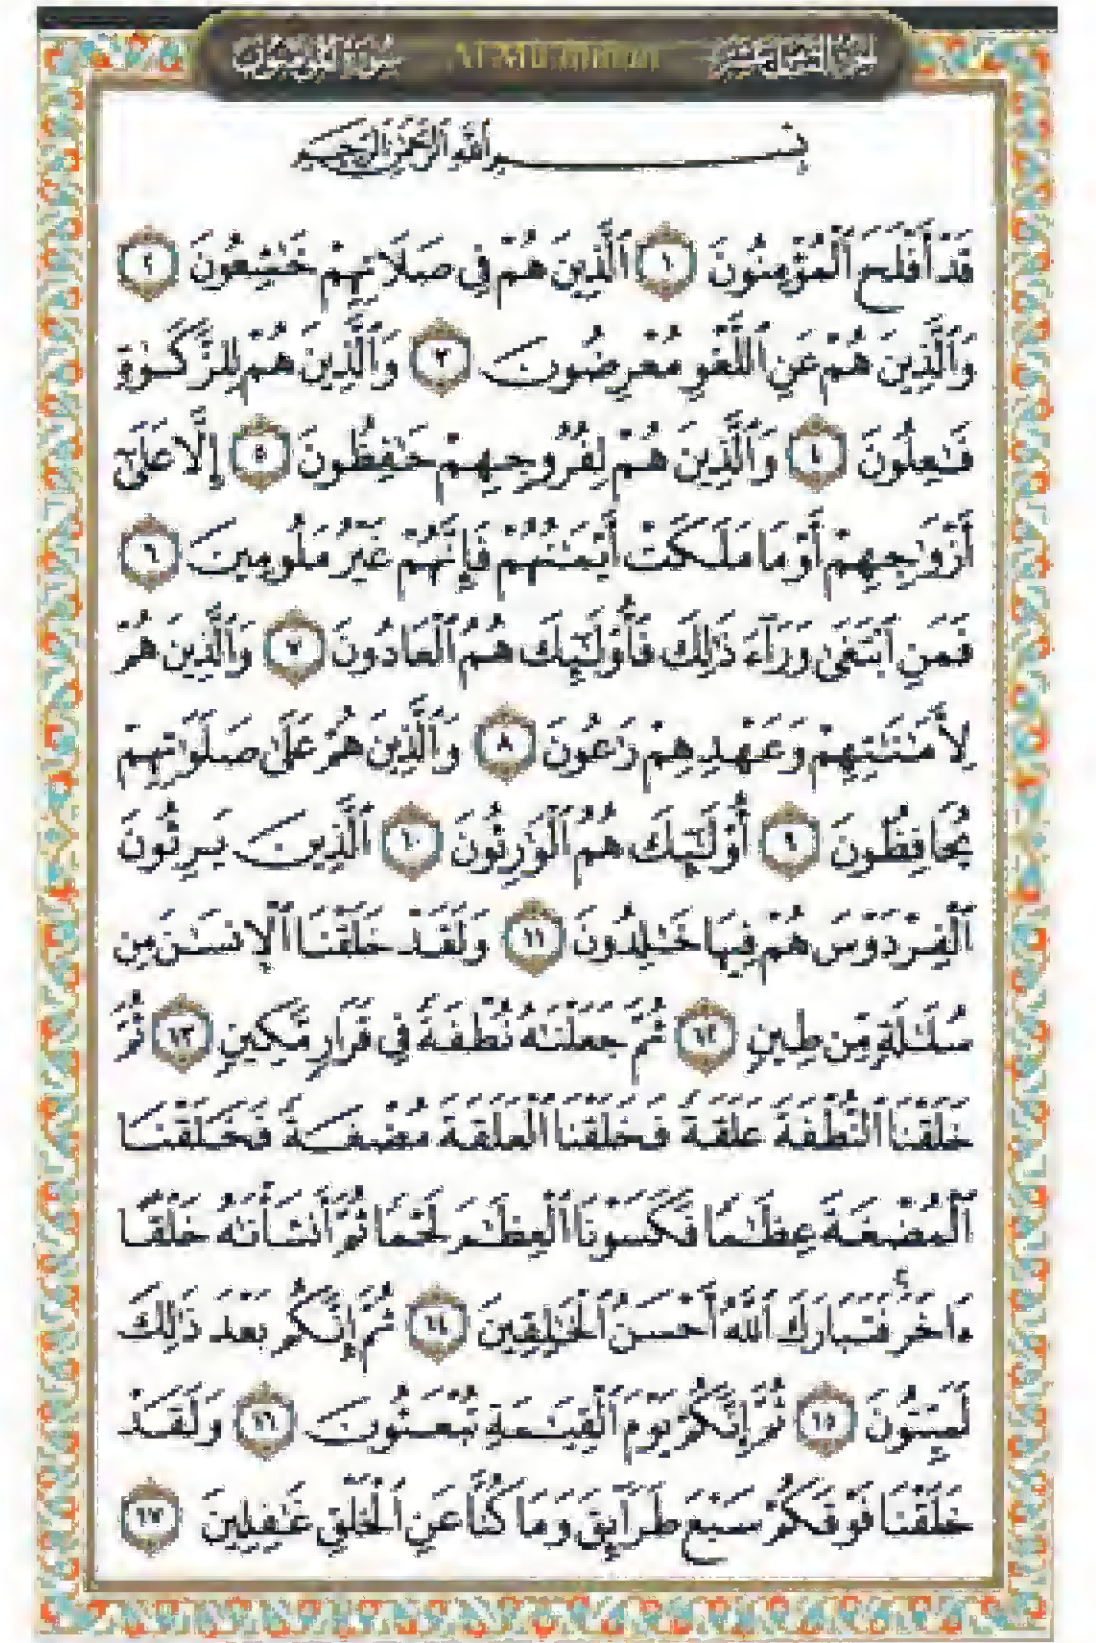 سورة المؤمنون Al-Mu'minun الجزء الثامن عشر
بِسْمِ ٱللَّهِ ٱلرَّحْمَٰنِ ٱلرَّحِيمِ
قَدْ أَفْلَحَ ٱلْمُؤْمِنُونَ ١ ٱلَّذِينَ هُمْ فِى صَلَاتِهِمْ خَٰشِعُونَ ٢
وَٱلَّذِينَ هُمْ عَنِ ٱللَّغْوِ مُعْرِضُونَ ٣ وَٱلَّذِينَ هُمْ لِلزَّكَوٰةِ
فَٰعِلُونَ ٤ وَٱلَّذِينَ هُمْ لِفُرُوجِهِمْ حَٰفِظُونَ ٥ إِلَّا عَلَىٰٓ
أَزْوَٰجِهِمْ أَوْ مَا مَلَكَتْ أَيْمَٰنُهُمْ فَإِنَّهُمْ غَيْرُ مَلُومِينَ ٦
فَمَنِ ٱبْتَغَىٰ وَرَآءَ ذَٰلِكَ فَأُو۟لَٰٓئِكَ هُمُ ٱلْعَادُونَ ٧ وَٱلَّذِينَ هُمْ
لِأَمَٰنَٰتِهِمْ وَعَهْدِهِمْ رَٰعُونَ ٨ وَٱلَّذِينَ هُمْ عَلَىٰ صَلَوَٰتِهِمْ
يُحَافِظُونَ ٩ أُو۟لَٰٓئِكَ هُمُ ٱلْوَٰرِثُونَ ١٠ ٱلَّذِينَ يَرِثُونَ
ٱلْفِرْدَوْسَ هُمْ فِيهَا خَٰلِدُونَ ١١ وَلَقَدْ خَلَقْنَا ٱلْإِنسَٰنَ مِن
سُلَٰلَةٍ مِّن طِينٍ ١٢ ثُمَّ جَعَلْنَٰهُ نُطْفَةً فِى قَرَارٍ مَّكِينٍ ١٣ ثُمَّ
خَلَقْنَا ٱلنُّطْفَةَ عَلَقَةً فَخَلَقْنَا ٱلْعَلَقَةَ مُضْغَةً فَخَلَقْنَا
ٱلْمُضْغَةَ عِظَٰمًا فَكَسَوْنَا ٱلْعِظَٰمَ لَحْمًا ثُمَّ أَنشَأْنَٰهُ خَلْقًا
ءَاخَرَ ۚ فَتَبَارَكَ ٱللَّهُ أَحْسَنُ ٱلْخَٰلِقِينَ ١٤ ثُمَّ إِنَّكُم بَعْدَ ذَٰلِكَ
لَمَيِّتُونَ ١٥ ثُمَّ إِنَّكُمْ يَوْمَ ٱلْقِيَٰمَةِ تُبْعَثُونَ ١٦ وَلَقَدْ
خَلَقْنَا فَوْقَكُمْ سَبْعَ طَرَآئِقَ وَمَا كُنَّا عَنِ ٱلْخَلْقِ غَٰفِلِينَ ١٧